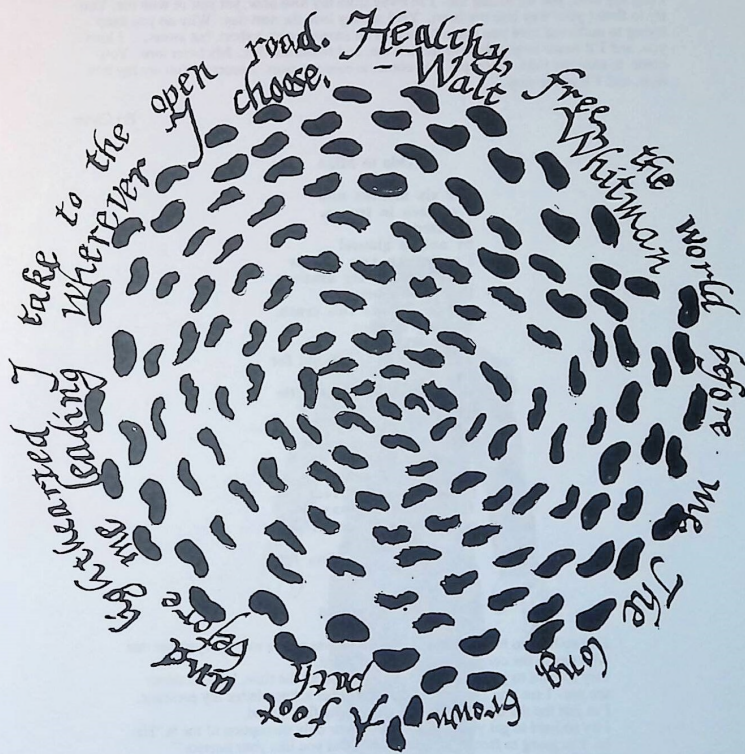 A foot and lighthearted I take to the open road. Healthy, free, the world before me The long, brown
path before me leading Wherever I choose. - Walt Whitman